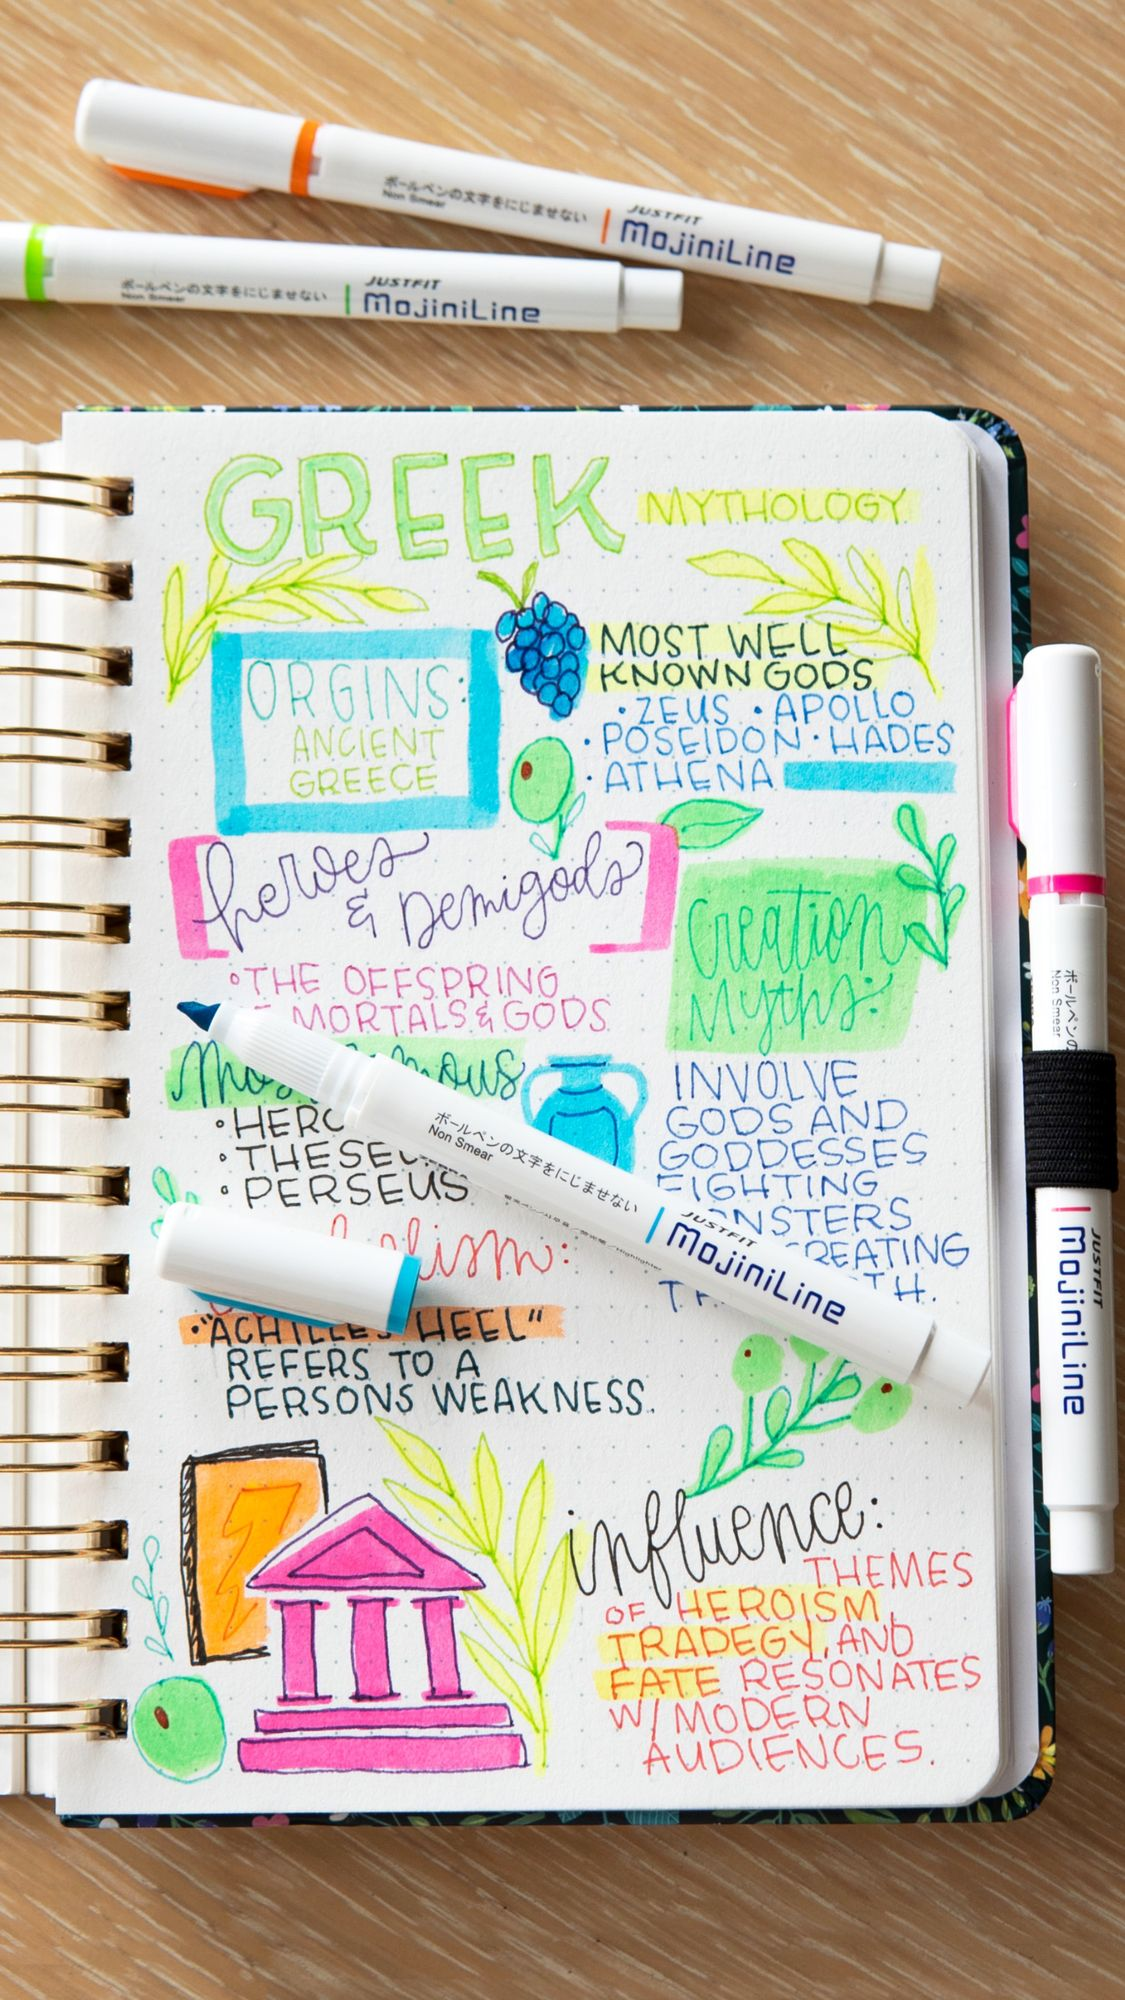 ボールペンの文字をにじませない
Non Smear
JUSTFIT
MojiniLine
ボールペンの文字をにじませない
Non Smear
JUSTFIT
MojiniLine
GREEK
MYTHOLOGY
ORGINS:
ANCIENT
GREECE
MOST WELL
KNOWN GODS
·ZEUS ·APOLLO
·POSEIDON·HADES
·ATHENA
heroes
& Demigods
°THE OFFSPRING
MORTALS & GODS
Creation
Myths:
°PERSEUS
INVOLVE
GODS AND
GODDESSES
FIGHTING
"ACHILLES HEEL"
REFERS TO A
PERSONS WEAKNESS.
influence:
THEMES
OF HEROISM,
TRADEGY, AND
FATE RESONATES
W/ MODERN
AUDIENCES.
ボールペンの文字をにじませない
Non Smear
JUSTFIT
MojiniLine
Non Smear
JUSTFIT
MojiniLine